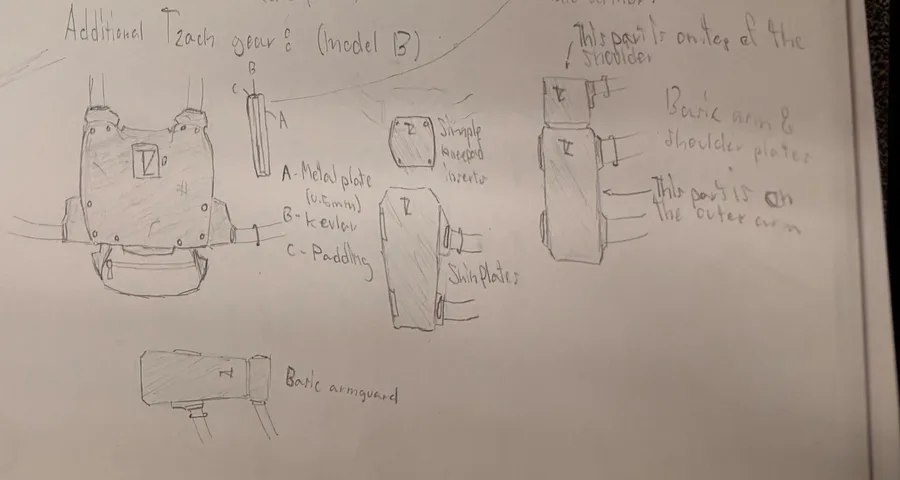 Additional Tzach gear: (Model B)
B
C
A
A - Metal plate
(0.5mm)
B - Kevlar
C - Padding
Simple
kneepad
inserts
Shinplates
This part is on top of the
shoulder
Basic arm &
shoulder plates
This part is on
the outer arm
Basic armguard